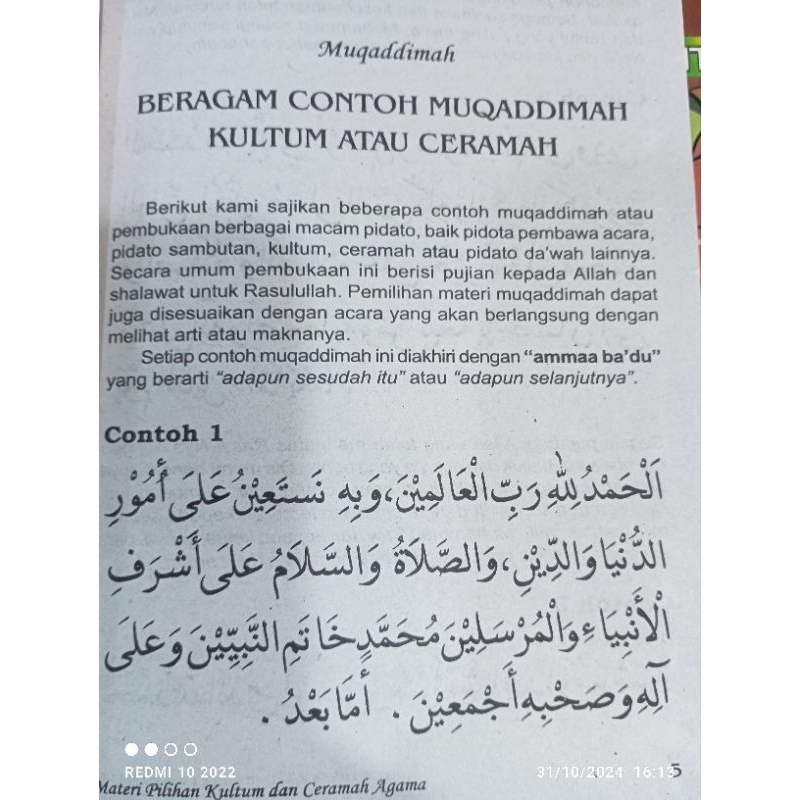 Muqaddimah
BERAGAM CONTOH MUQADDIMAH
KULTUM ATAU CERAMAH
Berikut kami sajikan beberapa contoh muqaddimah atau
pembukaan berbagai macam pidato, baik pidota pembawa acara,
pidato sambutan, kultum, ceramah atau pidato da'wah lainnya.
Secara umum pembukaan ini berisi pujian kepada Allah dan
shalawat untuk Rasulullah. Pemilihan materi muqaddimah dapat
juga disesuaikan dengan acara yang akan berlangsung dengan
melihat arti atau maknanya.
Setiap contoh muqaddimah ini diakhiri dengan “ammaa ba'du”
yang berarti “adapun sesudah itu” atau “adapun selanjutnya”.
Contoh 1
اَلْحَمْدُ لِلّٰهِ رَبِّ الْعَالَمِيْنَ، وَبِهِ نَسْتَعِيْنُ عَلَى أُمُوْرِ
الدُّنْيَا وَالدِّيْنِ، وَالصَّلَاةُ وَالسَّلَامُ عَلَى أَشْرَفِ
الْأَنْبِيَاءِ وَالْمُرْسَلِيْنَ مُحَمَّدٍ خَاتَمِ النَّبِيِّيْنَ وَعَلَى
آلِهِ وَصَحْبِهِ أَجْمَعِيْنَ. أَمَّا بَعْدُ.
REDMI 10 2022
31/10/2024 16:13
5
Materi Pilihan Kultum dan Ceramah Agama